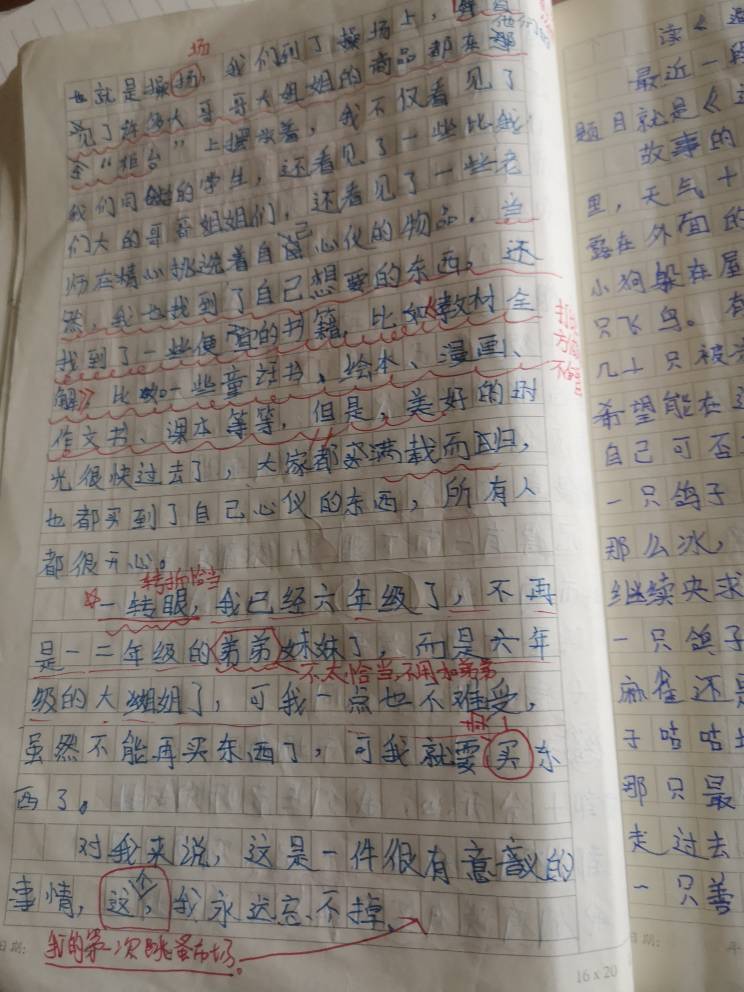 场
也就是操扬，我们到了操场上，
他们
觉了许多大哥哥大姐姐的商品都在那
全“柜台”上摆放着，我不仅看见了
我们同龄的学生，还看见了一些比我
们大的哥哥姐姐们，还看见了一些老
师在精心挑选着自己心仪的物品。当
然，我也找到了自己想要的东西。还
找到了一些便宜的书籍，比如《教材全
解》比如一些童话书、绘本、漫画、
作文书、课本等等，但是，美好的时
光很快过去了，大家都满载而归，
也都买到了自己心仪的东西，所有人
都很开心。
转折恰当
一转眼，我已经六年级了，不再
是一二年级的弟弟妹妹了，而是六年
不太恰当，不用加弟弟
级的大姐姐了，可我一点也不难受，
虽然不能再买东西了，可我就要买东
西了。
对我来说，这是一件很有意义的
事情，这，我永远忘不掉
个
我的第一次跳蚤市场。
日期：
16×20
读《
最近一
题目就是《
故事的
里，天气十
露在外面的
小狗躲在屋
只飞鸟。有
几十只被
希望能在这
自己可否
一只鸽子
那么冰，
继续央求
一只鸽子
麻雀还是
子咕咕
那只最
走过去
一只善
日期：